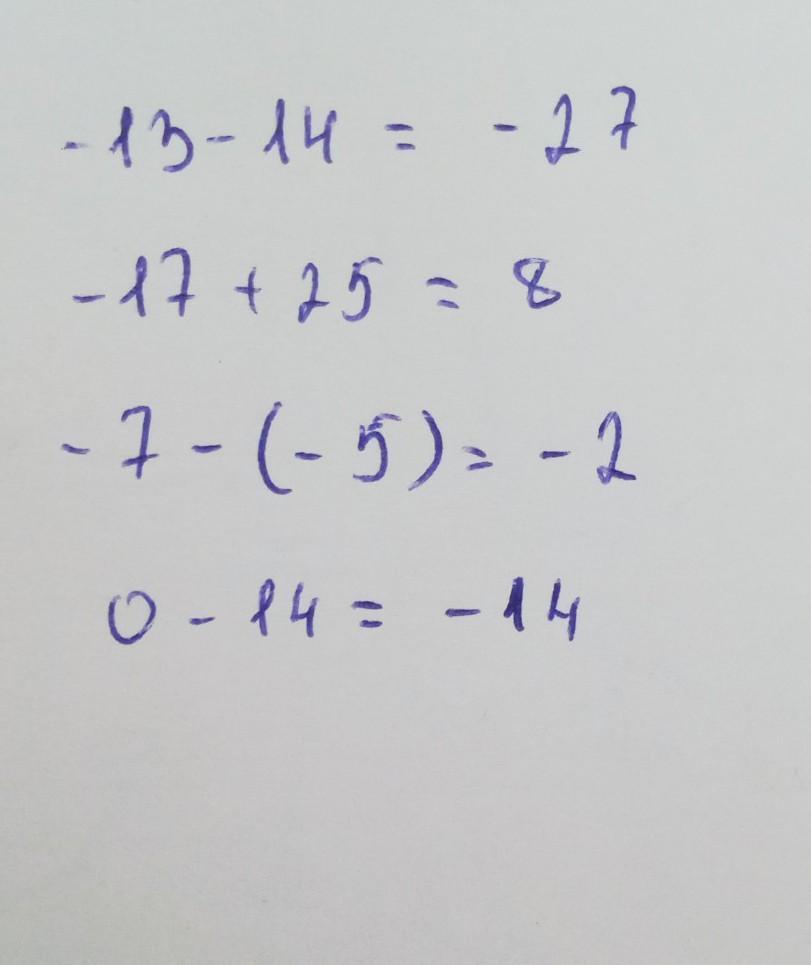 -13-14 = -27
-17 + 25 = 8
-7-(-5) = -2
0-14 = -14